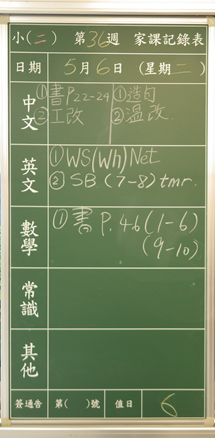 小(二) 第36週 家課記錄表
日期 5月6日 (星期二)
中文 ①書P.22-24 ①造句
②工改 ②溫改.
英文 ①WS(Wh)Net
②SB (7-8) tmr.
數學 ①書 P.46(1-6)
(9-10)
常識
其他
簽通告 第( )號 值日 6